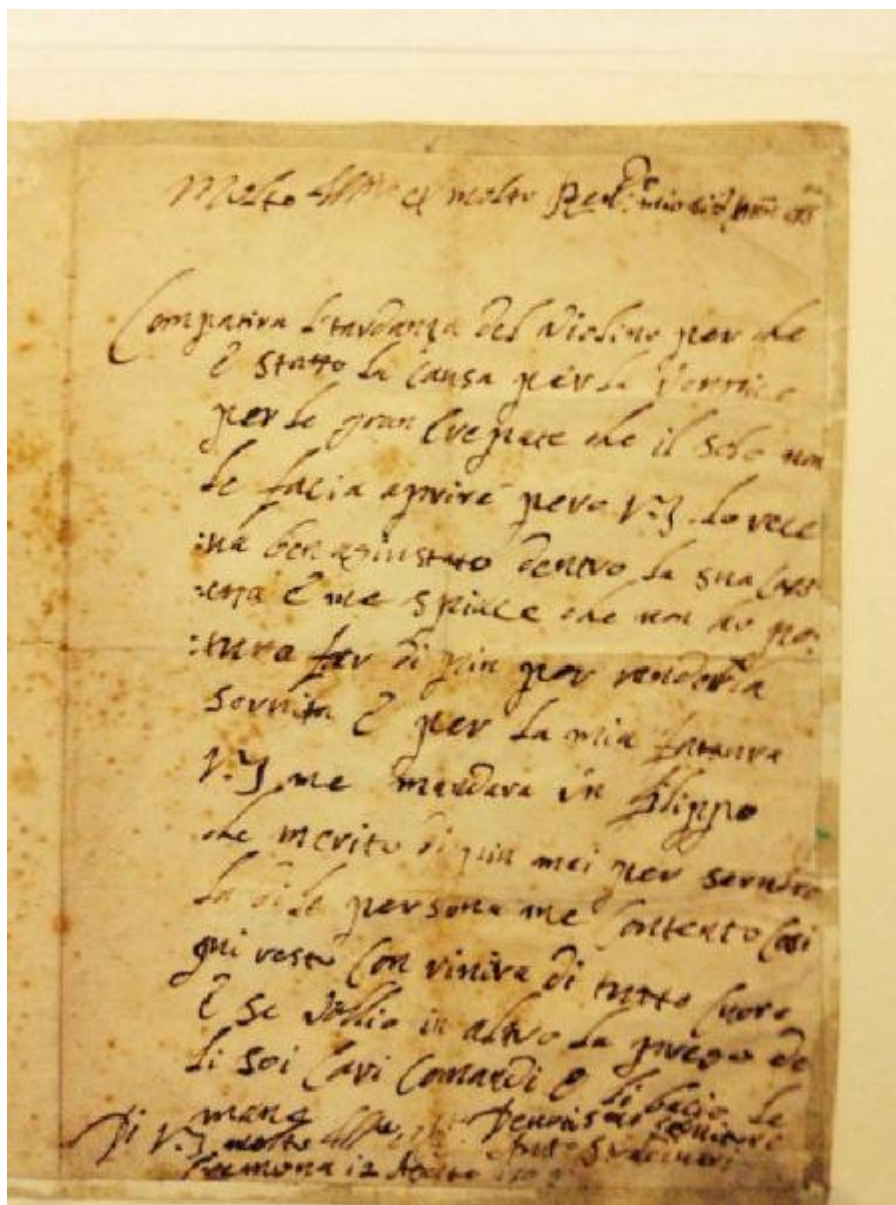 Molto Ill.re et molto Rev.do mio Sig.
Compatira la tardanza del Violino per che
è statto la Causa per la Vernice
per le gran Crepate che il sole non
le facia aprire però V.S. lo rece
:ha ben agiustato dentro la sua Cas
è me spiace che non ho po:
:tuta far di più per renderla
servita è per la mia fatura
V.S. me mandara un filippo
che merito di più mai per servire
la di le persona me Contento Così
qui resto Con di tutto Cuore
è se vallio in altro la prego de
li soi Cari Comandi e li bacio le
mane
Di V.S. molto Ill.re
servitore
Cremona 12 Agosto